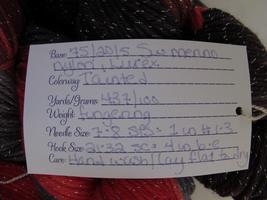 Base: 75/20/5 SW merino
nylon, lurex
Colorway: Tainted
Yards/Grams: 437/100
Weight: fingering
Needle Size: 7-8 sts = 1 in #1-3
Hook Size: 21-32 sc = 4 in b-e
Care: Hand wash/lay flat to dry